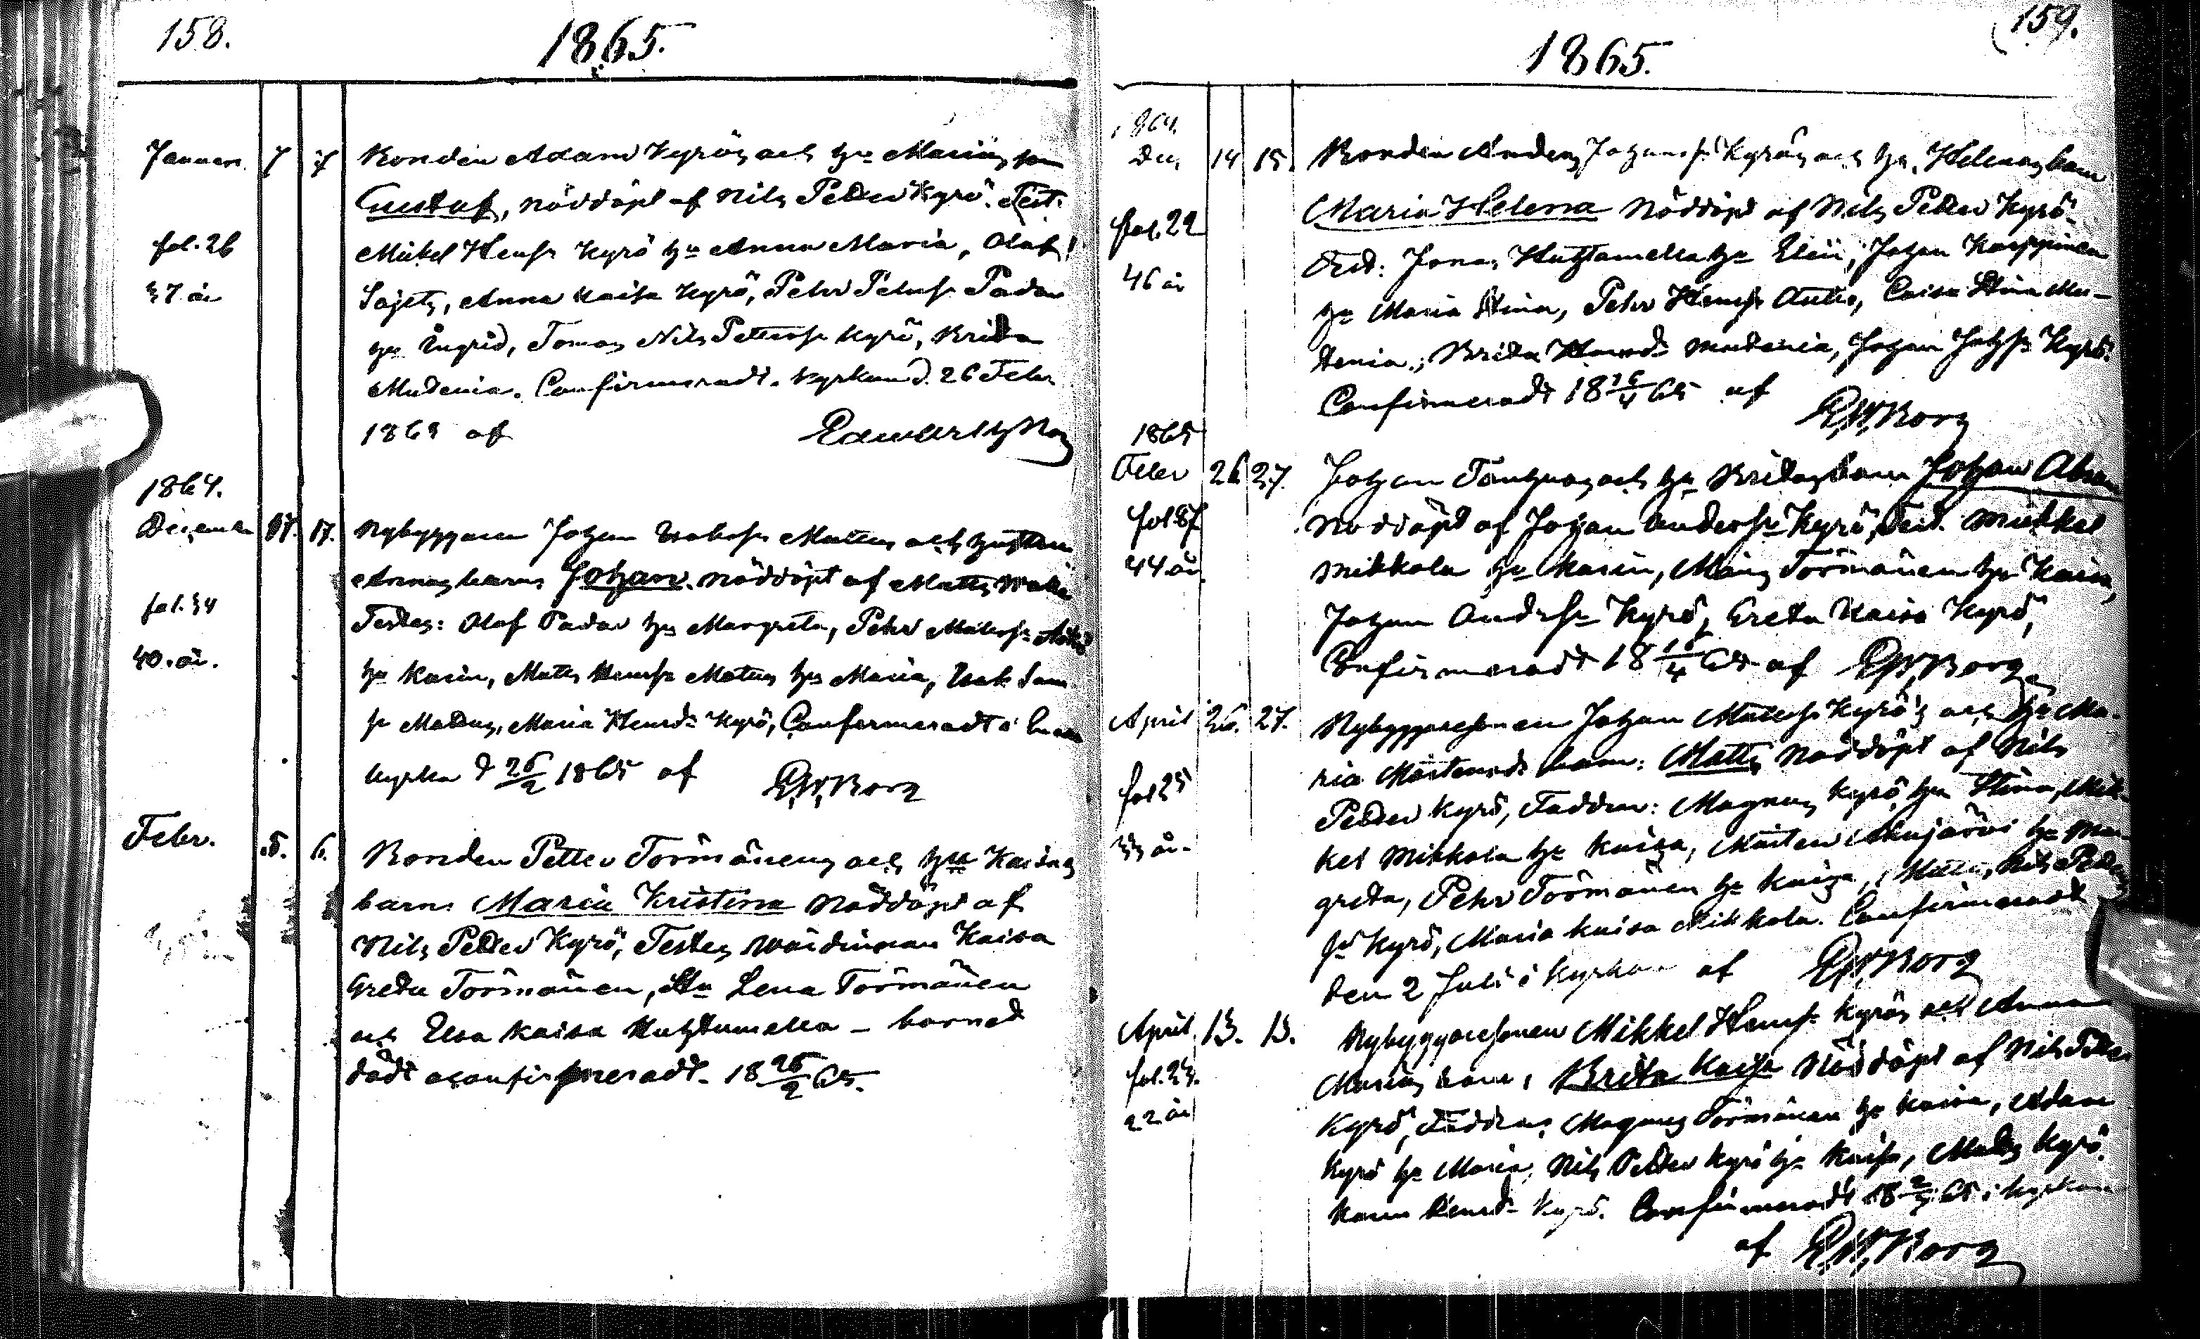 158.
1865.
Januari 7 7 Bonden Adam Kyrös och hu Marias son
Gustaf, nöddöpt af Nils Petter Kyrö. Test.
fol. 26 Mickel Henssn Kyrö hu Anna Maria, Olof
37 år Sajets, Anna Kaisa Kyrö, Pehr Pehrss Padar
hu Ingrid, Tomas Nils Petterss Kyrö, Brita
Mudenia. Confirmeradt i kyrkan d. 26 Febr.
1865 af Edward W Borg
1864.
December 17. 17. Nybyggaren Johan Isakss Mattus och hustru
Annas barn Johan nöddöpt af Matts
fol. 34 Testes: Olof Padar hu Margreta, Pehr
40. år. hu Karin, Matts Henss Mattus hu Maria, Isak
Mattus, Maria Henrsd Kyrö, Confirmeradt i
kyrka d 26/2 1865 af E.W.Borg
Febr. 5. 6. Bonden Petter Törmänens och hu Kaisas
barn Maria Kristina nöddöpt af
Nils Petter Kyrö, Testes Wärdinnan Kaisa
Greta Törmänen, Lena Törmänen
och Elsa Kaisa Huhtamella – barnet
dödt oconfirmeradt. 18 26/2 65.
159.
1865.
1864.
Dec 14 15. Bonden Anders Johanss Kyrös och hu Helenas barn
Maria Helena nöddöpt af Nils Petter Kyrö
fol. 22 Test: Jonas Huhtamella hu Elin, Johan Karppinen
46 år hu Maria Stina, Pehr Henss Autio, Caisa Stina Mu-
denia, Brita Henrsd Mudenia, Johan Johss Kyrö.
Confirmeradt 18 16/4 65 af E.W.Borg
1865
Febr 26 27. Johan och hu Britas barn Johan Abram
nöddöpt af Johan Anderss Kyrö, Test. Mikkel
44 år Mikkola hu Karin, Måns Törmänen hu Kaisa,
Johan Anderss Kyrö, Greta Kaisa Kyrö,
Confirmeradt 18 16/4 65 af E.W.Borg
April 26. 27. Nybyggaresonen Johan Matss Kyrös och hu Ma-
ria Mårtensds barn: Matts nöddöpt af Nils
fol 25 Petter Kyrö, Faddrar: Magnus Kyrö hu Stina, Mik-
33 år. kel Mikkola hu Kaisa, Mårten Akujärvi hu Mar-
greta, Pehr Törmänen hu Kaisa, Matts Nils Petters
sn Kyrö, Maria Kaisa Mikkola. Confirmeradt
den 2 Juli i kyrkan af E.W.Borg
April 13. 13. Nybyggaresonen Mikkel Henss Kyrös och Anna
fol. 27. Marias barn, Brita Kaisa nöddöpt af Nils Petter
22 år Kyrö, Faddrar, Magnus Törmänen hu Kaisa, Adam
Kyrö hu Maria, Nils Petter Kyrö hu Kaisa, Matts Kyrö.
Karin Henrsd Kyrö. Confirmeradt 18 2/7 65 i kyrkan
af E.W.Borg